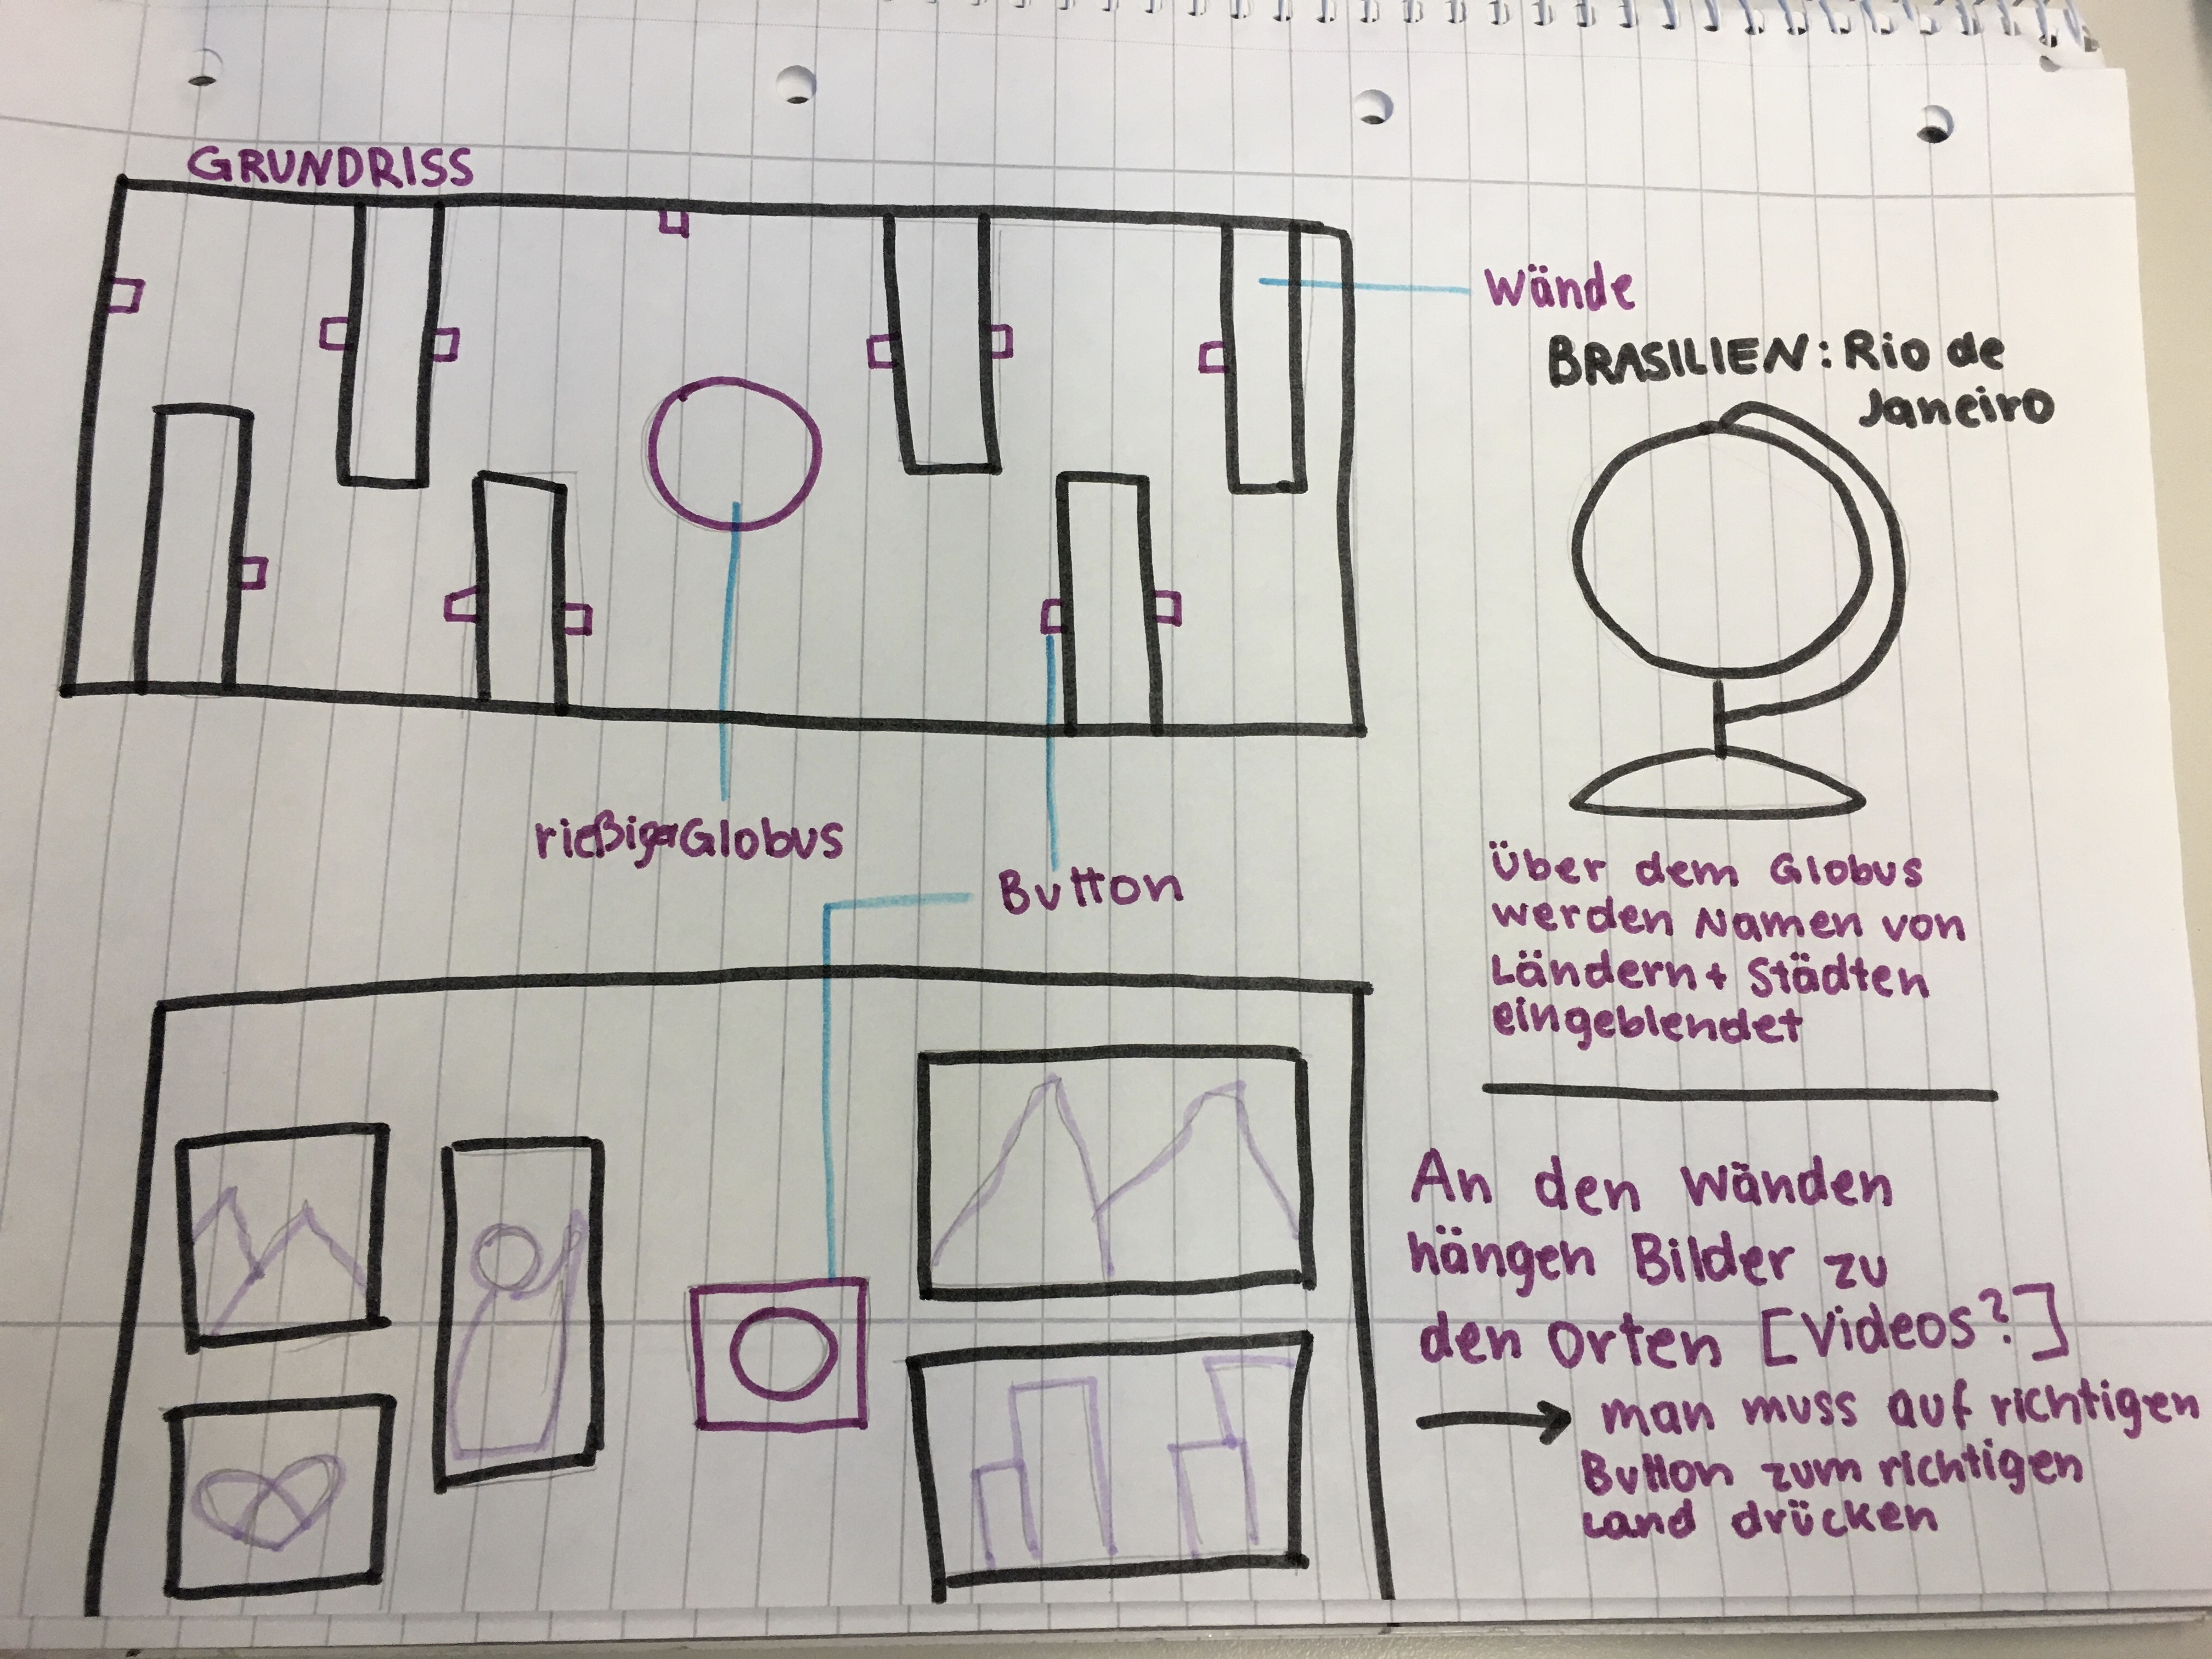 GRUNDRISS
Wände
BRASILIEN: Rio de
Janeiro
rießiger Globus
Button
Über dem Globus
werden Namen von
Ländern + Städten
eingeblendet
An den Wänden
hängen Bilder zu
den Orten [Videos?]
→ man muss auf richtigen
Button zum richtigen
Land drücken